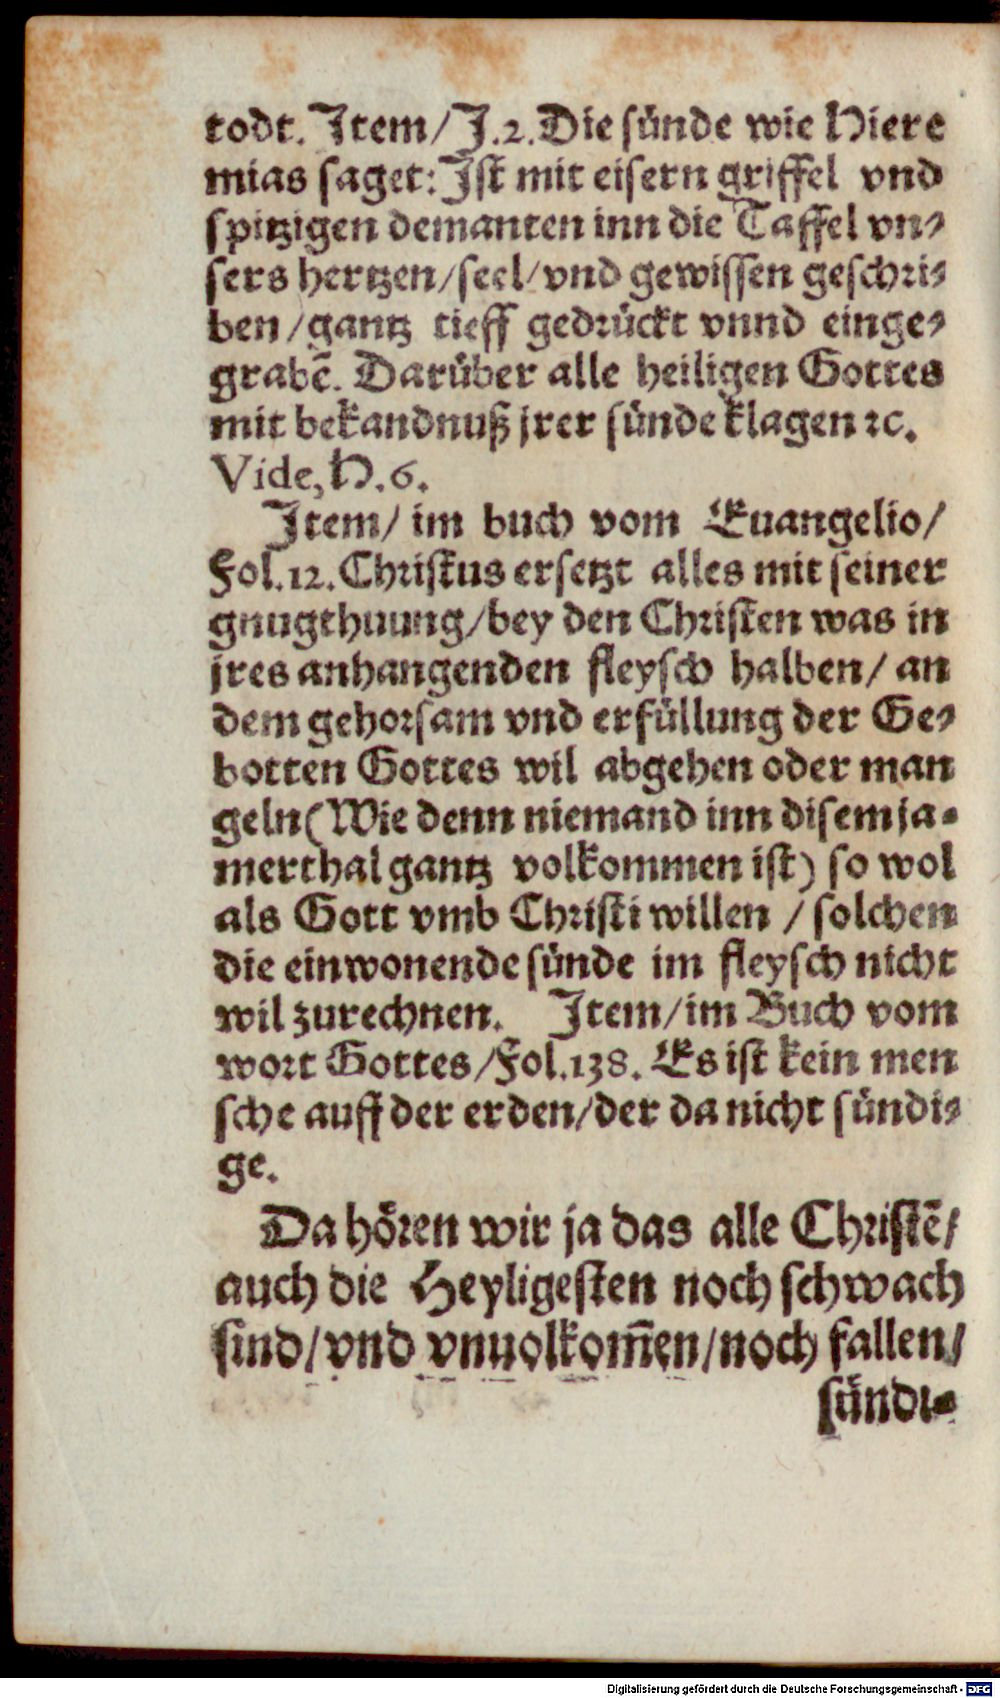 todt. Item/ J.2. Die sünde wie Hiere
mias saget: Ist mit eisern griffel vnd
spitzigen demanten inn die Taffel vn⸗
sers hertzen/seel/vnd gewissen geschri⸗
ben/gantz tieff gedrückt vnnd einge⸗
grabē. Darüber alle heiligen Gottes
mit bekandnuß jrer sünde klagen ꝛc.
Vide, H.6.
Item/ im buch vom Euangelio/
Fol.12. Christus ersetzt alles mit seiner
gnugthuung/bey den Christen was in
jres anhangenden fleysch halben/ an
dem gehorsam vnd erfüllung der Ge⸗
botten Gottes wil abgehen oder man
geln(Wie denn niemand inn disem ja⸗
merthal gantz volkommen ist) so wol
als Gott vmb Christi willen / solchen
die einwonende sünde im fleysch nicht
wil zurechnen. Item/im Buch vom
wort Gottes/Fol.138. Es ist kein men
sche auff der erden/der da nicht sündi⸗
ge.
Da hören wir ja das alle Christē/
auch die Heyligesten noch schwach
sind/vnd vnuolkom̄en/noch fallen/
sündi⸗
Digitalisierung gefördert durch die Deutsche Forschungsgemeinschaft - DFG